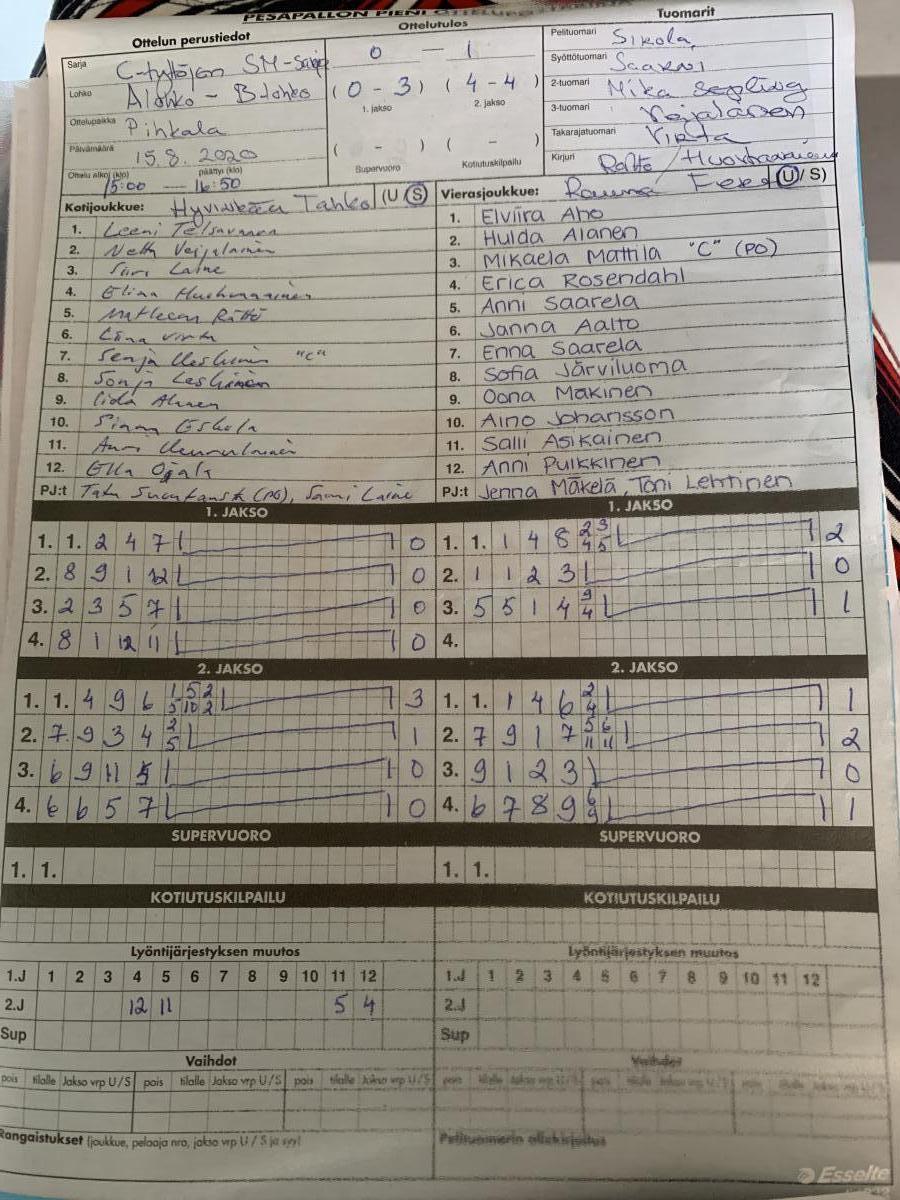 PESÄPALLON PIENI OTTELUPÖYTÄKIRJA
Ottelun perustiedot
Sarja C-tyttöjen SM-sarja
Lohko Alohko - B-lohko
Ottelupaikka Pihkala
Päivämäärä 15.8. 2020
Ottelu alkoi (klo) päättyi (klo)
15:00 — 16:50
Ottelutulos
0 — 1
(0 - 3) (4 - 4)
1. jakso 2. jakso
( - ) ( - )
Supervuoro Kotiutuskilpailu
Tuomarit
Pelituomari Sikola
Syöttötuomari Saarni
2-tuomari Mika Sepling
3-tuomari
Takarajatuomari Virta
Kirjuri Rättö /
Kotijoukkue: Hyvinkään Tahko (U/S)
1. Leeni
2. Netta Veijalainen
3. Siiri Laine
4. Elina
5. Rättö
6. Virta
7. Senja Leskinen "C"
8. Sonja Leskinen
9. Iida Ahonen
10. Eskola
11. Anni
12. Ella Ojala
PJ:t (PO), Sami Laine
Vierasjoukkue: Rauma Fera (U/S)
1. Elviira Aho
2. Hulda Alanen
3. Mikaela Mattila "C" (PO)
4. Erica Rosendahl
5. Anni Saarela
6. Janna Aalto
7. Enna Saarela
8. Sofia Järviluoma
9. Oona Mäkinen
10. Aino Johansson
11. Salli Asikainen
12. Anni Pulkkinen
PJ:t Jenna Mäkelä, Toni Lehtinen
1. JAKSO
1. 1. 2 4 7 0
2. 8 9 1 12 0
3. 2 3 5 7 0
4. 8 1 12 11 0
1. JAKSO
1. 1. 1 4 8 2 3 2
4 5
2. 1 1 2 3 0
3. 5 5 1 4 9 1
4
4.
2. JAKSO
1. 1. 4 9 6 1 5 2 3
5 10 2
2. 7 9 3 4 2 1
5
3. 6 9 11 5 0
4. 6 6 5 7 0
2. JAKSO
1. 1. 1 4 6 2 1
4
2. 7 9 1 7 5 6 2
11 11
3. 9 1 2 3 0
4. 6 7 8 9 6 1
9
SUPERVUORO
1. 1.
SUPERVUORO
1. 1.
KOTIUTUSKILPAILU
KOTIUTUSKILPAILU
Lyöntijärjestyksen muutos
1.J 1 2 3 4 5 6 7 8 9 10 11 12
2.J 12 11 5 4
Sup
Lyöntijärjestyksen muutos
1.J 1 2 3 4 5 6 7 8 9 10 11 12
2.J
Sup
Vaihdot
pois tilalle Jakso vrp U/S pois tilalle Jakso vrp U/S pois tilalle Jakso vrp U/S
Vaihdot
pois tilalle Jakso vrp U/S
Rangaistukset (joukkue, pelaaja nro, jakso vrp U / S ja syy)
Pelituomarin allekirjoitus
Esselte